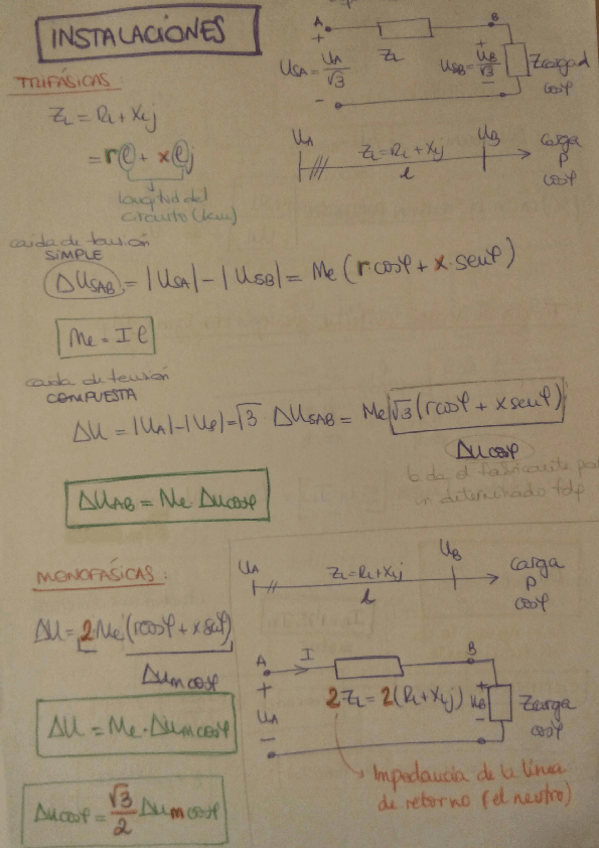 INSTALACIONES
A
B
+
ZL
USA = UA/√3
USB = UB/√3
+
-
-
Zcarga
cosφ
TRIFÁSICAS:
ZL = RL + XLj
= rℓ + xℓj
longitud del
circuito (km)
UA
UB
ZL = RL + XLj
ℓ
carga
P
cosφ
caída de tensión
SIMPLE
ΔUSAB = |USA| - |USB| = Me (r cosφ + x senφ)
Me = I ℓ
caída de tensión
COMPUESTA
ΔU = |UA| - |UB| = √3 ΔUSAB = Me √3 (r cosφ + x senφ)
Δu cosφ
lo da el fabricante para
un determinado fdp
ΔUAB = Me · Δu cosφ
MONOFÁSICAS:
UA
UB
ZL = RL + XLj
ℓ
carga
P
cosφ
ΔU = 2 Me (r cosφ + x senφ)
Δum cosφ
ΔU = Me · Δum cosφ
Δu cosφ = √3/2 Δum cosφ
A
I
B
+
UA
-
2ZL = 2(RL + XLj)
+
UB
-
Zcarga
cosφ
Impedancia de la línea
de retorno (el neutro)